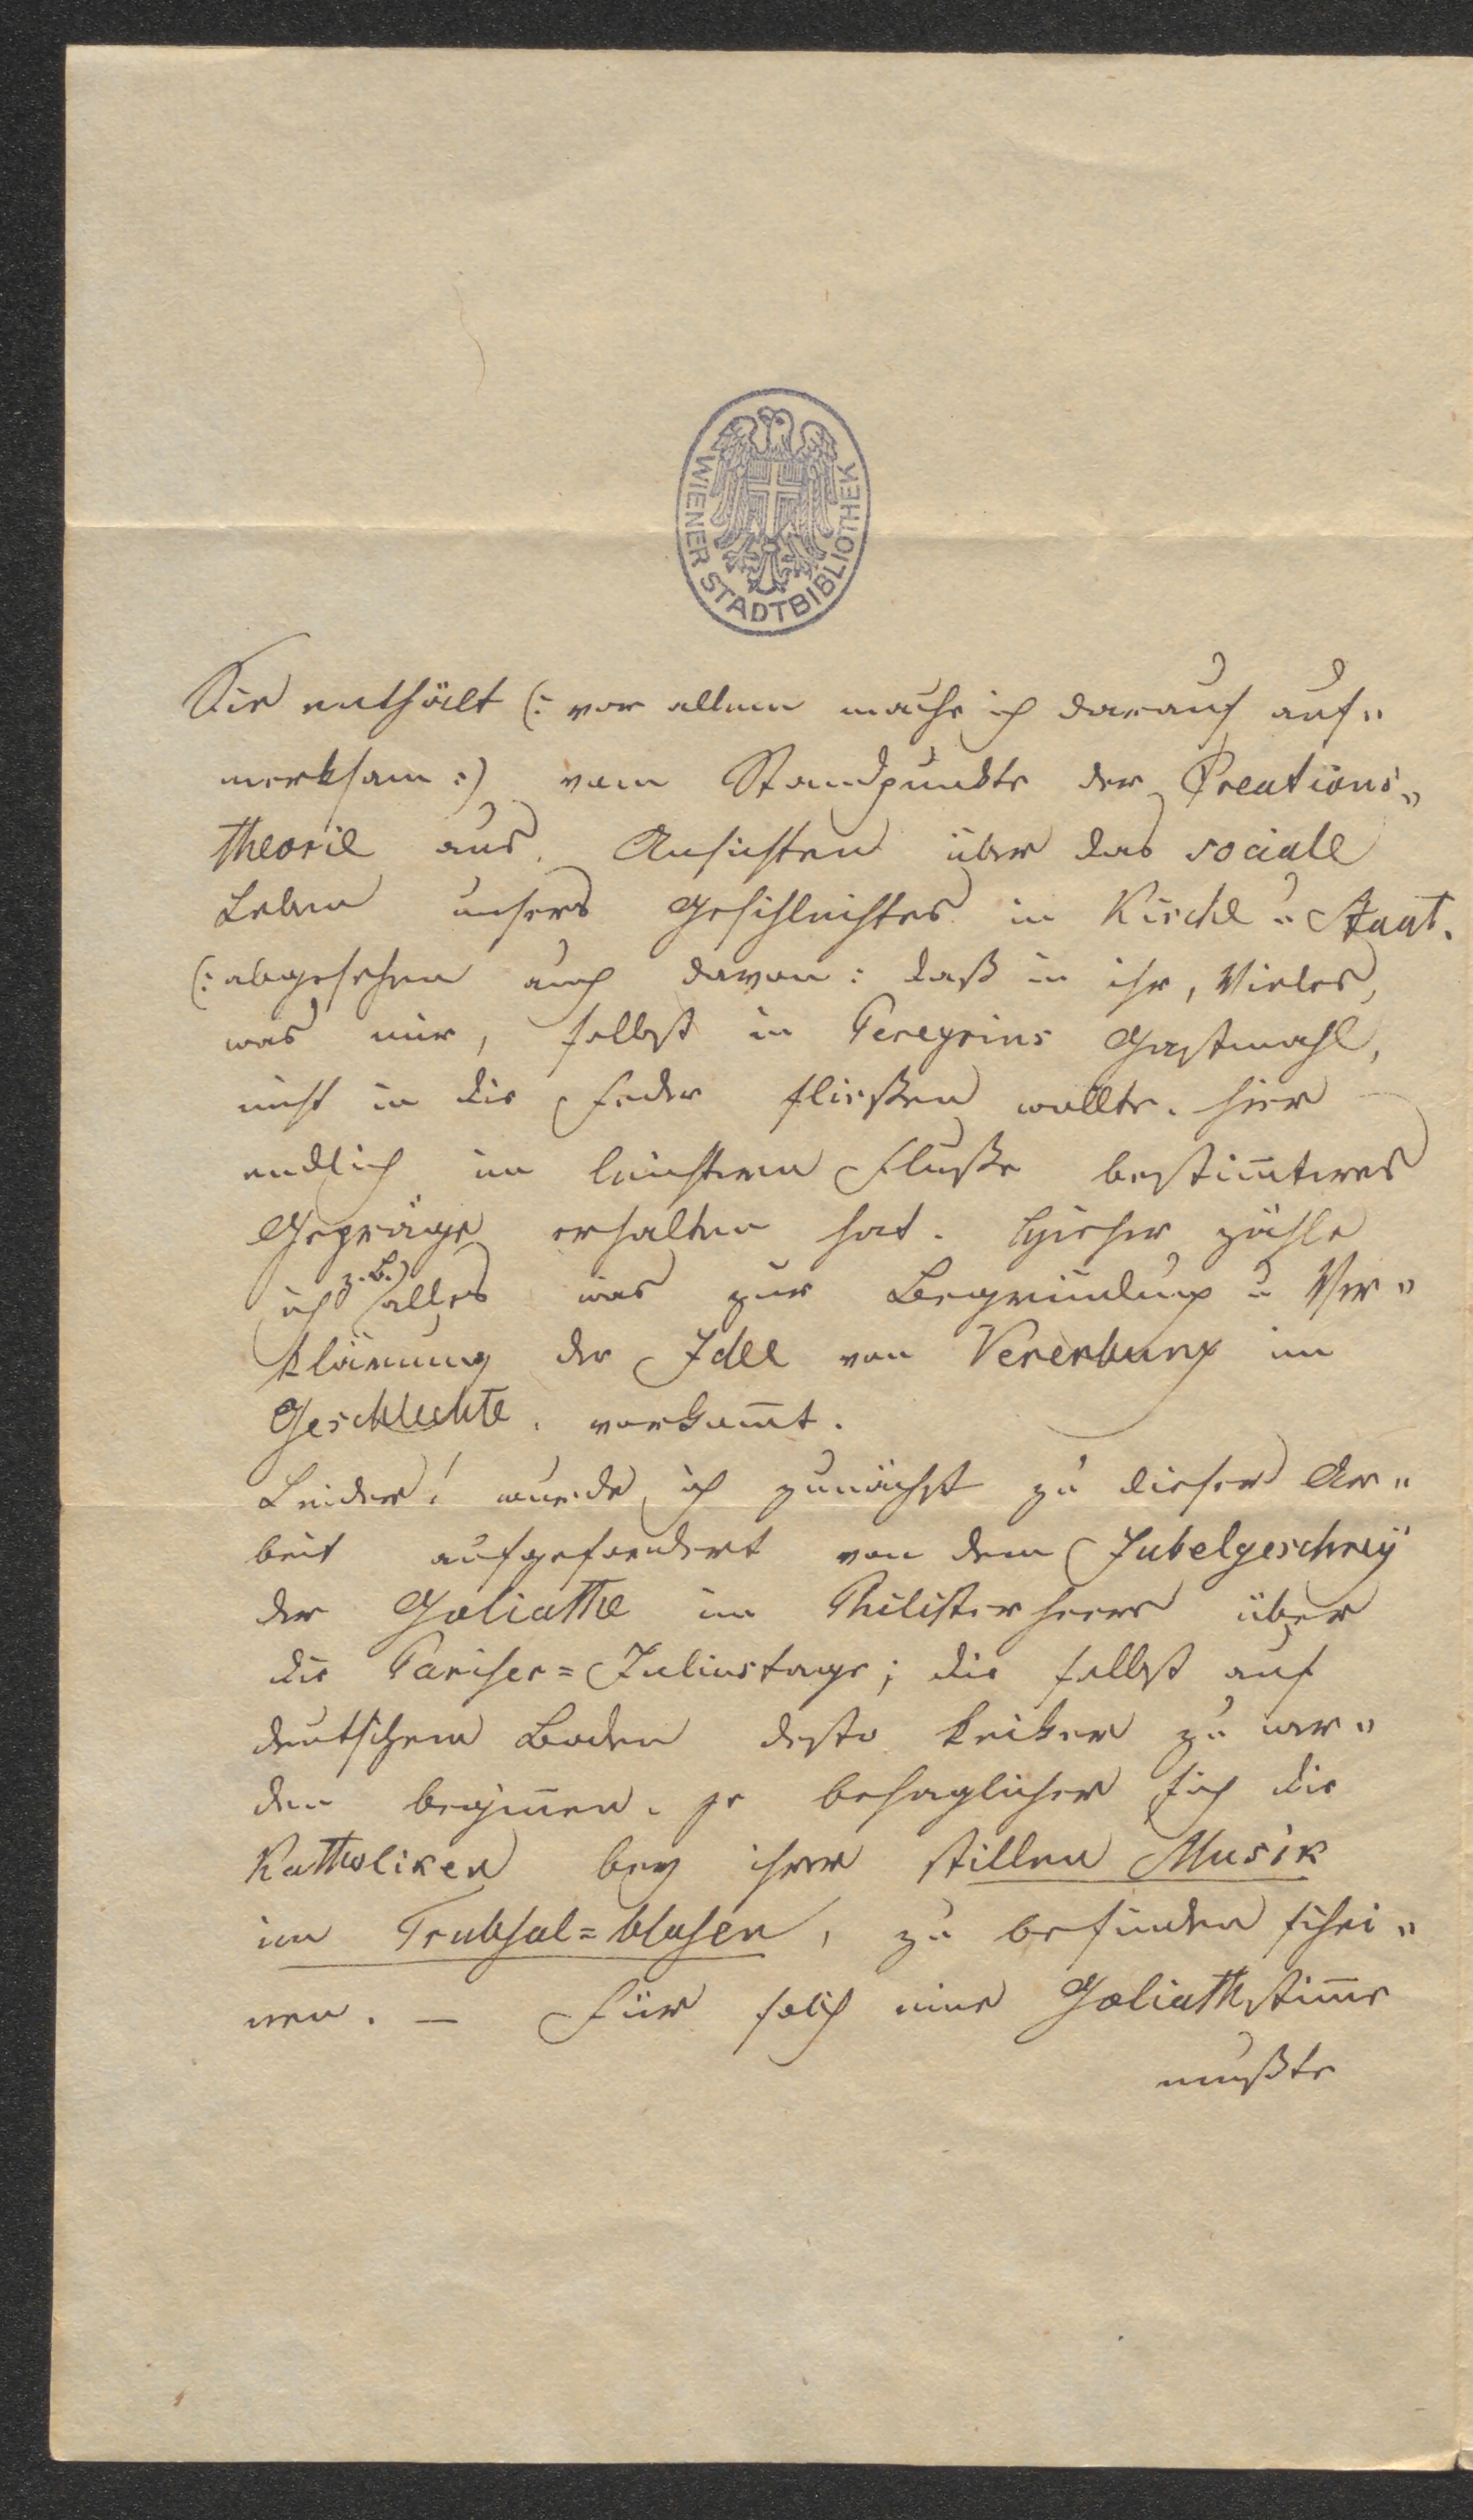 WIENER STADTBIBLIOTHEK
Sie enthält (: vor allem mache ich darauf auf„
merksam :) vom Standpunkte der Creations„
theorie aus. Ansichten über das sociale
Leben unsers Geschlechtes in Kirche u Staat.
(: abgesehen auch davon: daß in ihr, Vieles,
was mir, selbst in Peregrins Gastmahl,
nicht in die Feder fließen wollte. hier
endlich im leichtern Fluße bestim̅teres
Gepräge erhalten hat. Hieher zähle
ich z. B.) alles was zur Begründung u Ver„
klärung der Idee von Vererbung im
Geschlechte, vorkom̅t.
Leider! wurde ich zunächst zu dieser Ar„
beit aufgefordert von dem Jubelgeschrey
der Goliathe im Philisterheere über
die Pariser=Juliustage; die selbst auf
deutschem Boden desto kecker zu wer„
den begin̅en. je behaglicher sich die
Katholiken bey ihrer stillen Musik
im Trubsal=blasen, zu befinden schei„
nen. — Für solch eine Goliathstim̅e
mußte